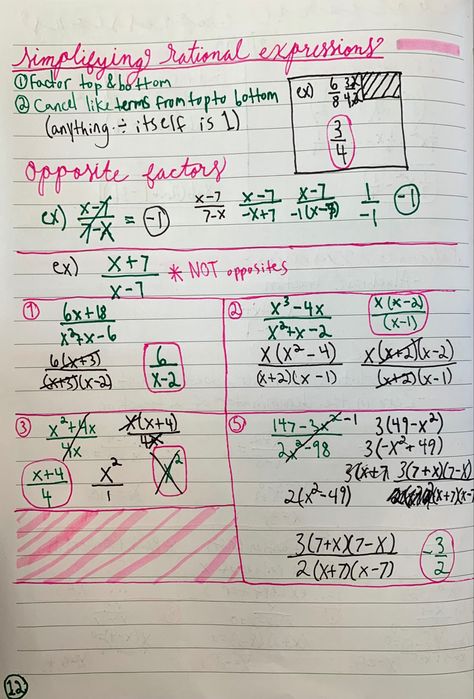 simplifying rational expressions
① Factor top & bottom
② Cancel like terms from top to bottom
(anything ÷ itself is 1)
ex) 6/8 = 3·2/4·2
3/4
opposite factors
ex) (x-7)/(7-x) = -1   (x-7)/(7-x)   (x-7)/(-x+7)   (x-7)/(-1(x-7))   1/-1   -1
ex) (x+7)/(x-7) * NOT opposites
① (6x+18)/(x²+x-6)
6(x+3)/((x+3)(x-2))   6/(x-2)
② (x³-4x)/(x²+x-2)   x(x-2)/(x-1)
x(x²-4)/((x+2)(x-1))   x(x+2)(x-2)/((x+2)(x-1))
③ (x²+4x)/4x   x(x+4)/4x
(x+4)/4   x²/1   x²
⑤ (147-3x²)/(2x²-98)   -1   3(49-x²)
3(-x²+49)
3(x+7   3(7+x)(7-x)
2(x²-49)   (x+7)(x-7)
3(7+x)(7-x)/(2(x+7)(x-7))   -3/2
12